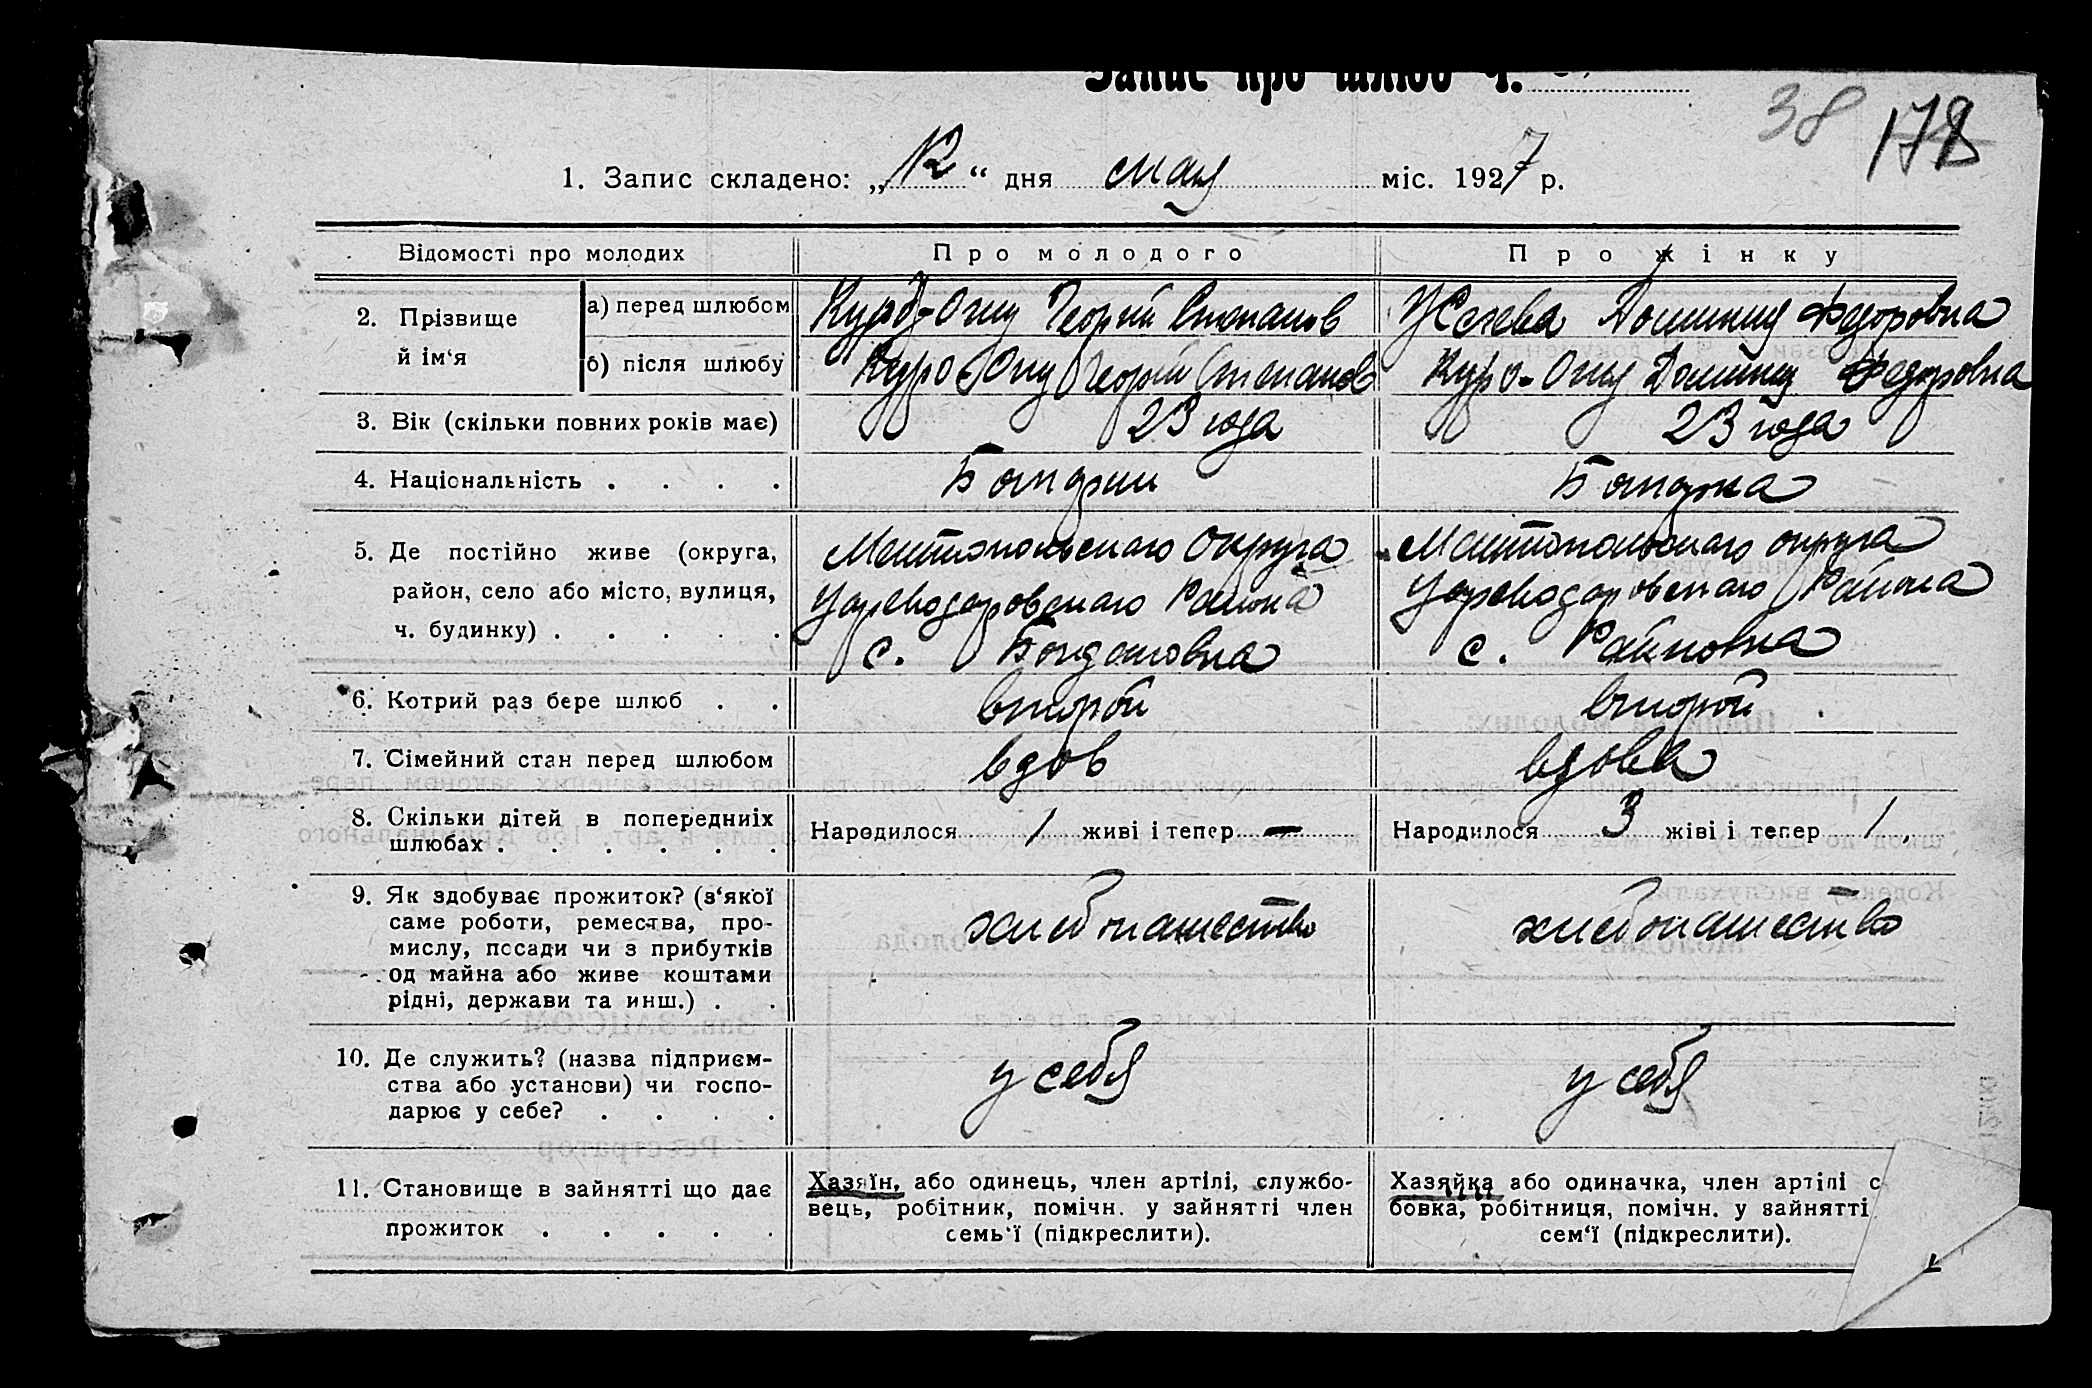 Запис про шлюб ч.
38 178
1. Запис складено: „12“ дня мая міс. 1927 р.
Відомості про молодих
Про молодого
Про жінку
2. Прізвище й ім‘я
а) перед шлюбом
Георгий Степанов
Федоровна
б) після шлюбу
Георгий Степанов
Куро-Оглу Федоровна
3. Вік (скільки повних років має)
23 года
23 года
4. Національність . . . .
Болгарин
Болгарка
5. Де постійно живе (округа,
район, село або місто, вулиця,
ч. будинку) . . . . .
Мелитопольскаго округа
района
с. Богдановка
Мелитопольскаго округа
района
с. Райновка
6. Котрий раз бере шлюб . .
второй
второй
7. Сімейний стан перед шлюбом
вдов
вдова
8. Скільки дітей в попередніх
шлюбах . . . . . .
Народилося 1 живі і тепер —
Народилося 3 живі і тепер 1.
9. Як здобуває прожиток? (з‘якої
саме роботи, ремества, про-
мислу, посади чи з прибутків
од майна або живе коштами
рідні, держави та инш.) . .
хлебопашество
хлебопашество
10. Де служить? (назва підприєм-
ства або установи) чи госпо-
дарює у себе? . . . .
у себя
у себя
11. Становище в зайнятті що дає
прожиток . . . . .
Хазяїн, або одинець, член артілі, службо-
вець, робітник, помічн. у зайнятті член
семь‘ї (підкреслити).
Хазяйка або одиначка, член артілі с
бовка, робітниця, помічн. у зайнятті
сем‘ї (підкреслити).